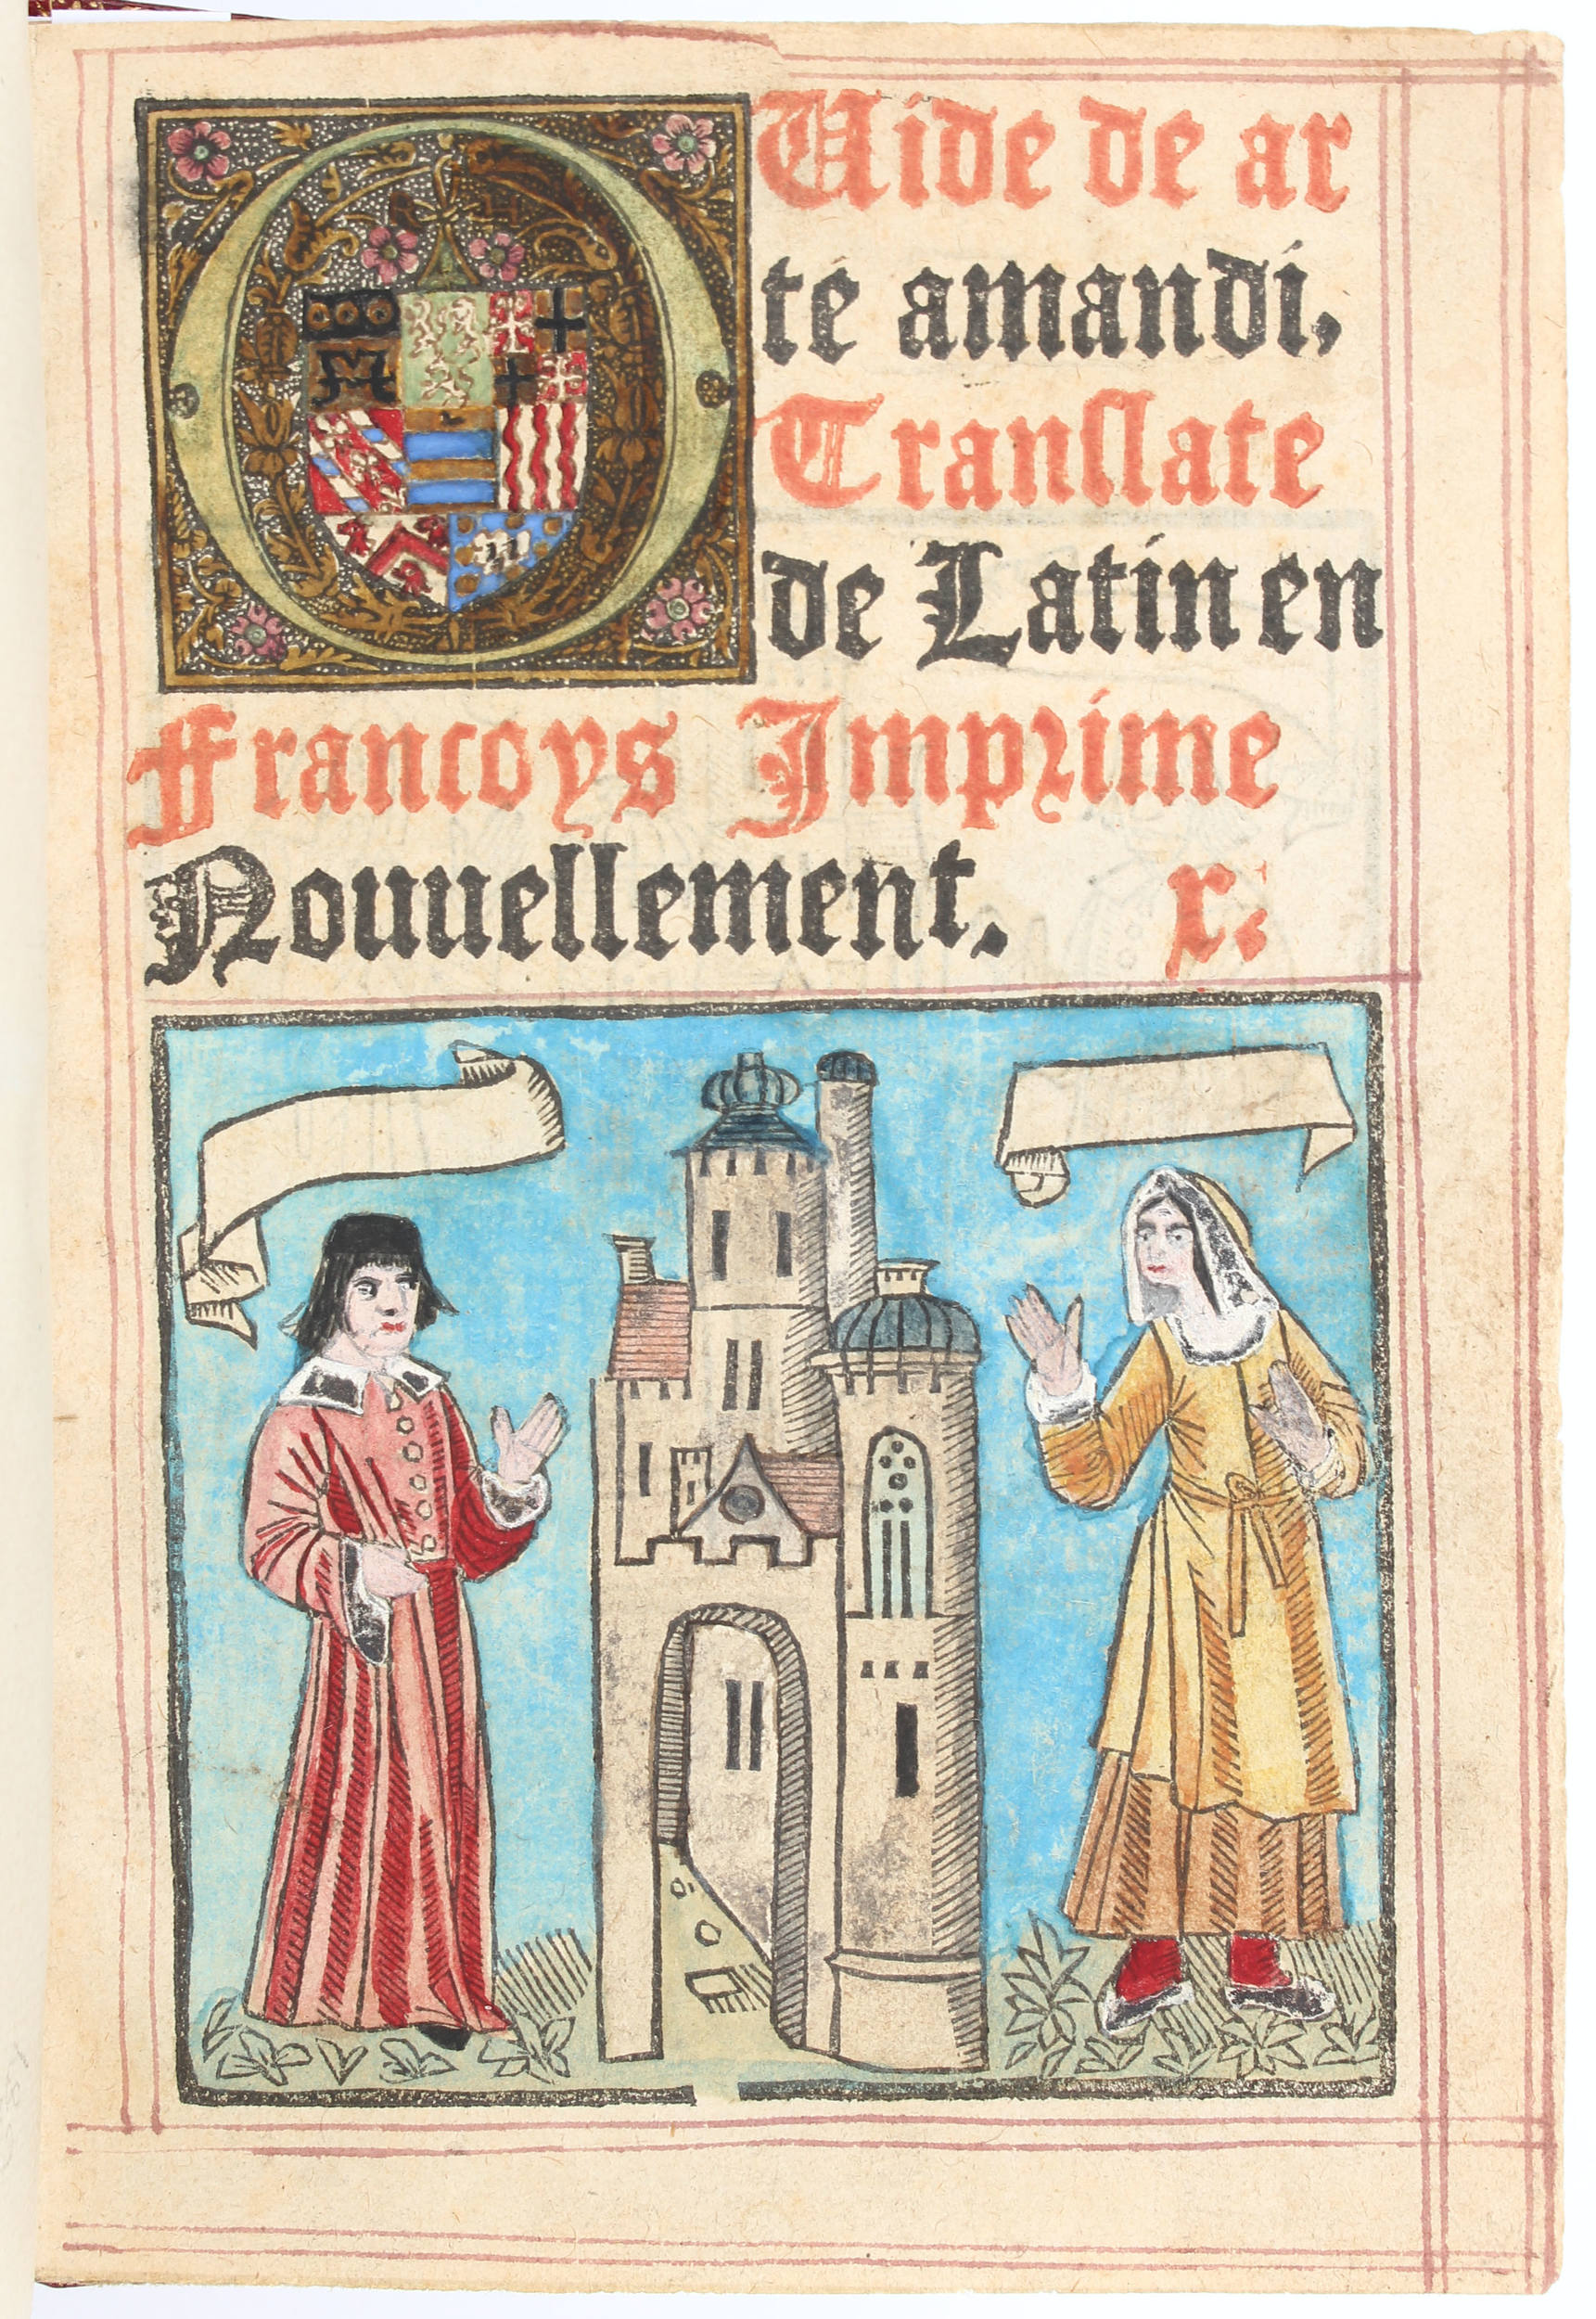 OUide de ar
te amandi,
Tranſlate
de Latin en
Francoys Imprime
Nouuellement. x.